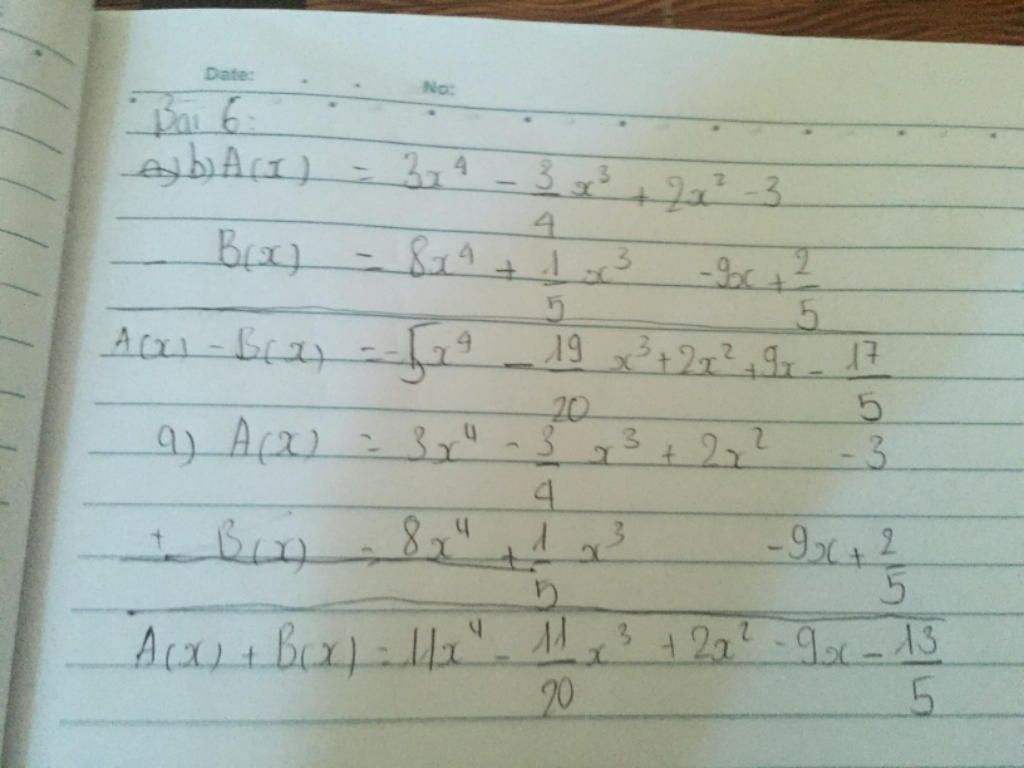 Date: No:
Bài 6:
a) b) A(x) = 3x⁴ - 3/4 x³ + 2x² - 3
- B(x) = 8x⁴ + 1/5 x³ - 9x + 2/5
A(x) - B(x) = -5x⁴ - 19/20 x³ + 2x² + 9x - 17/5
a) A(x) = 3x⁴ - 3/4 x³ + 2x² - 3
+ B(x) = 8x⁴ + 1/5 x³ - 9x + 2/5
A(x) + B(x) = 11x⁴ - 11/20 x³ + 2x² - 9x - 13/5